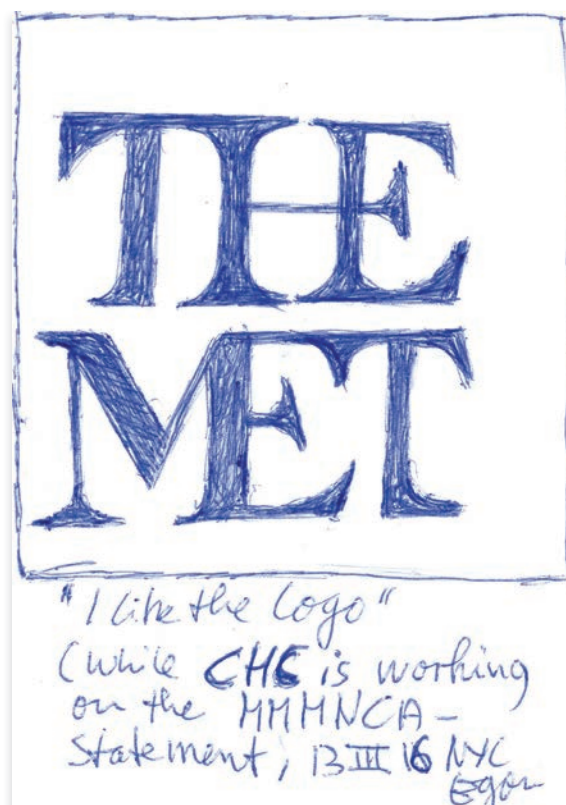 THE
MET
"I like the Logo"
(while CHC is working
on the MMMNCA-
Statement, 13 III 16 NYC
Egon